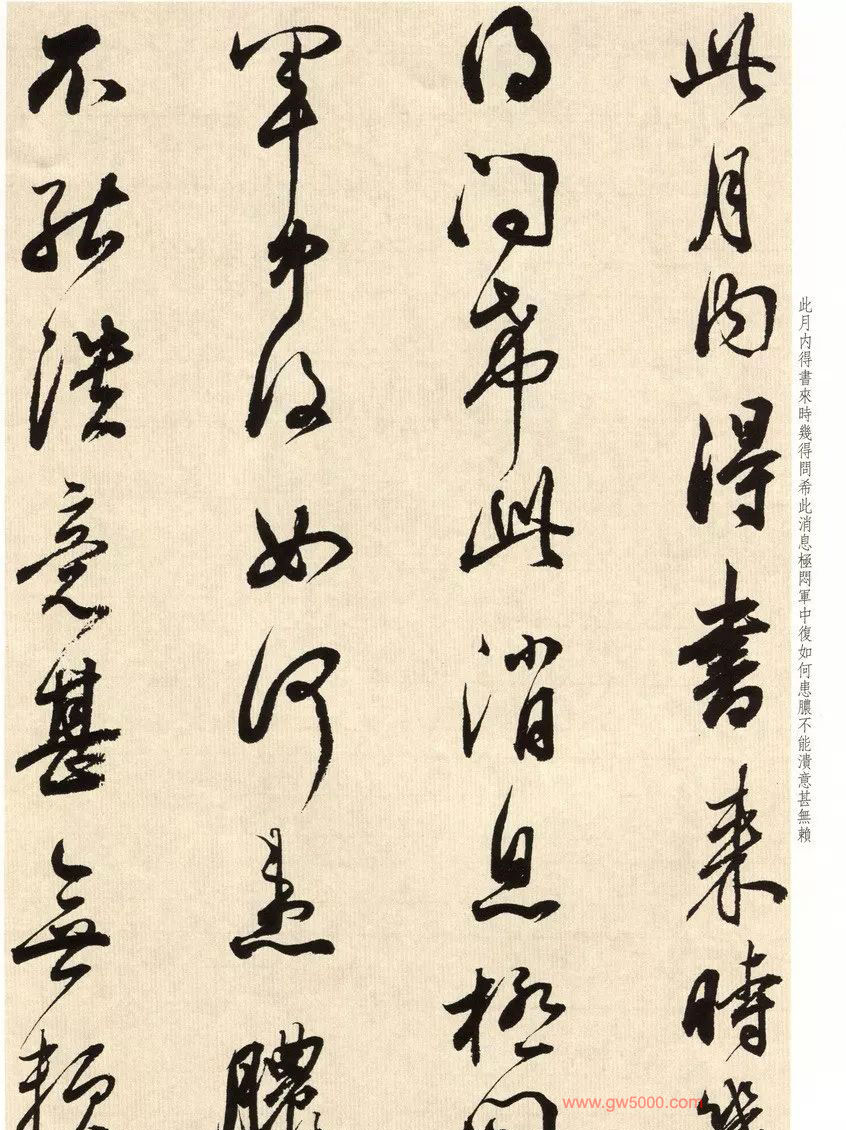 此月内得書来時幾
得問希此消息極悶
軍中復如何患膿
不能潰意甚無賴
此月内得書來時幾得問希此消息極悶軍中復如何患膿不能潰意甚無賴
www.gw5000.com